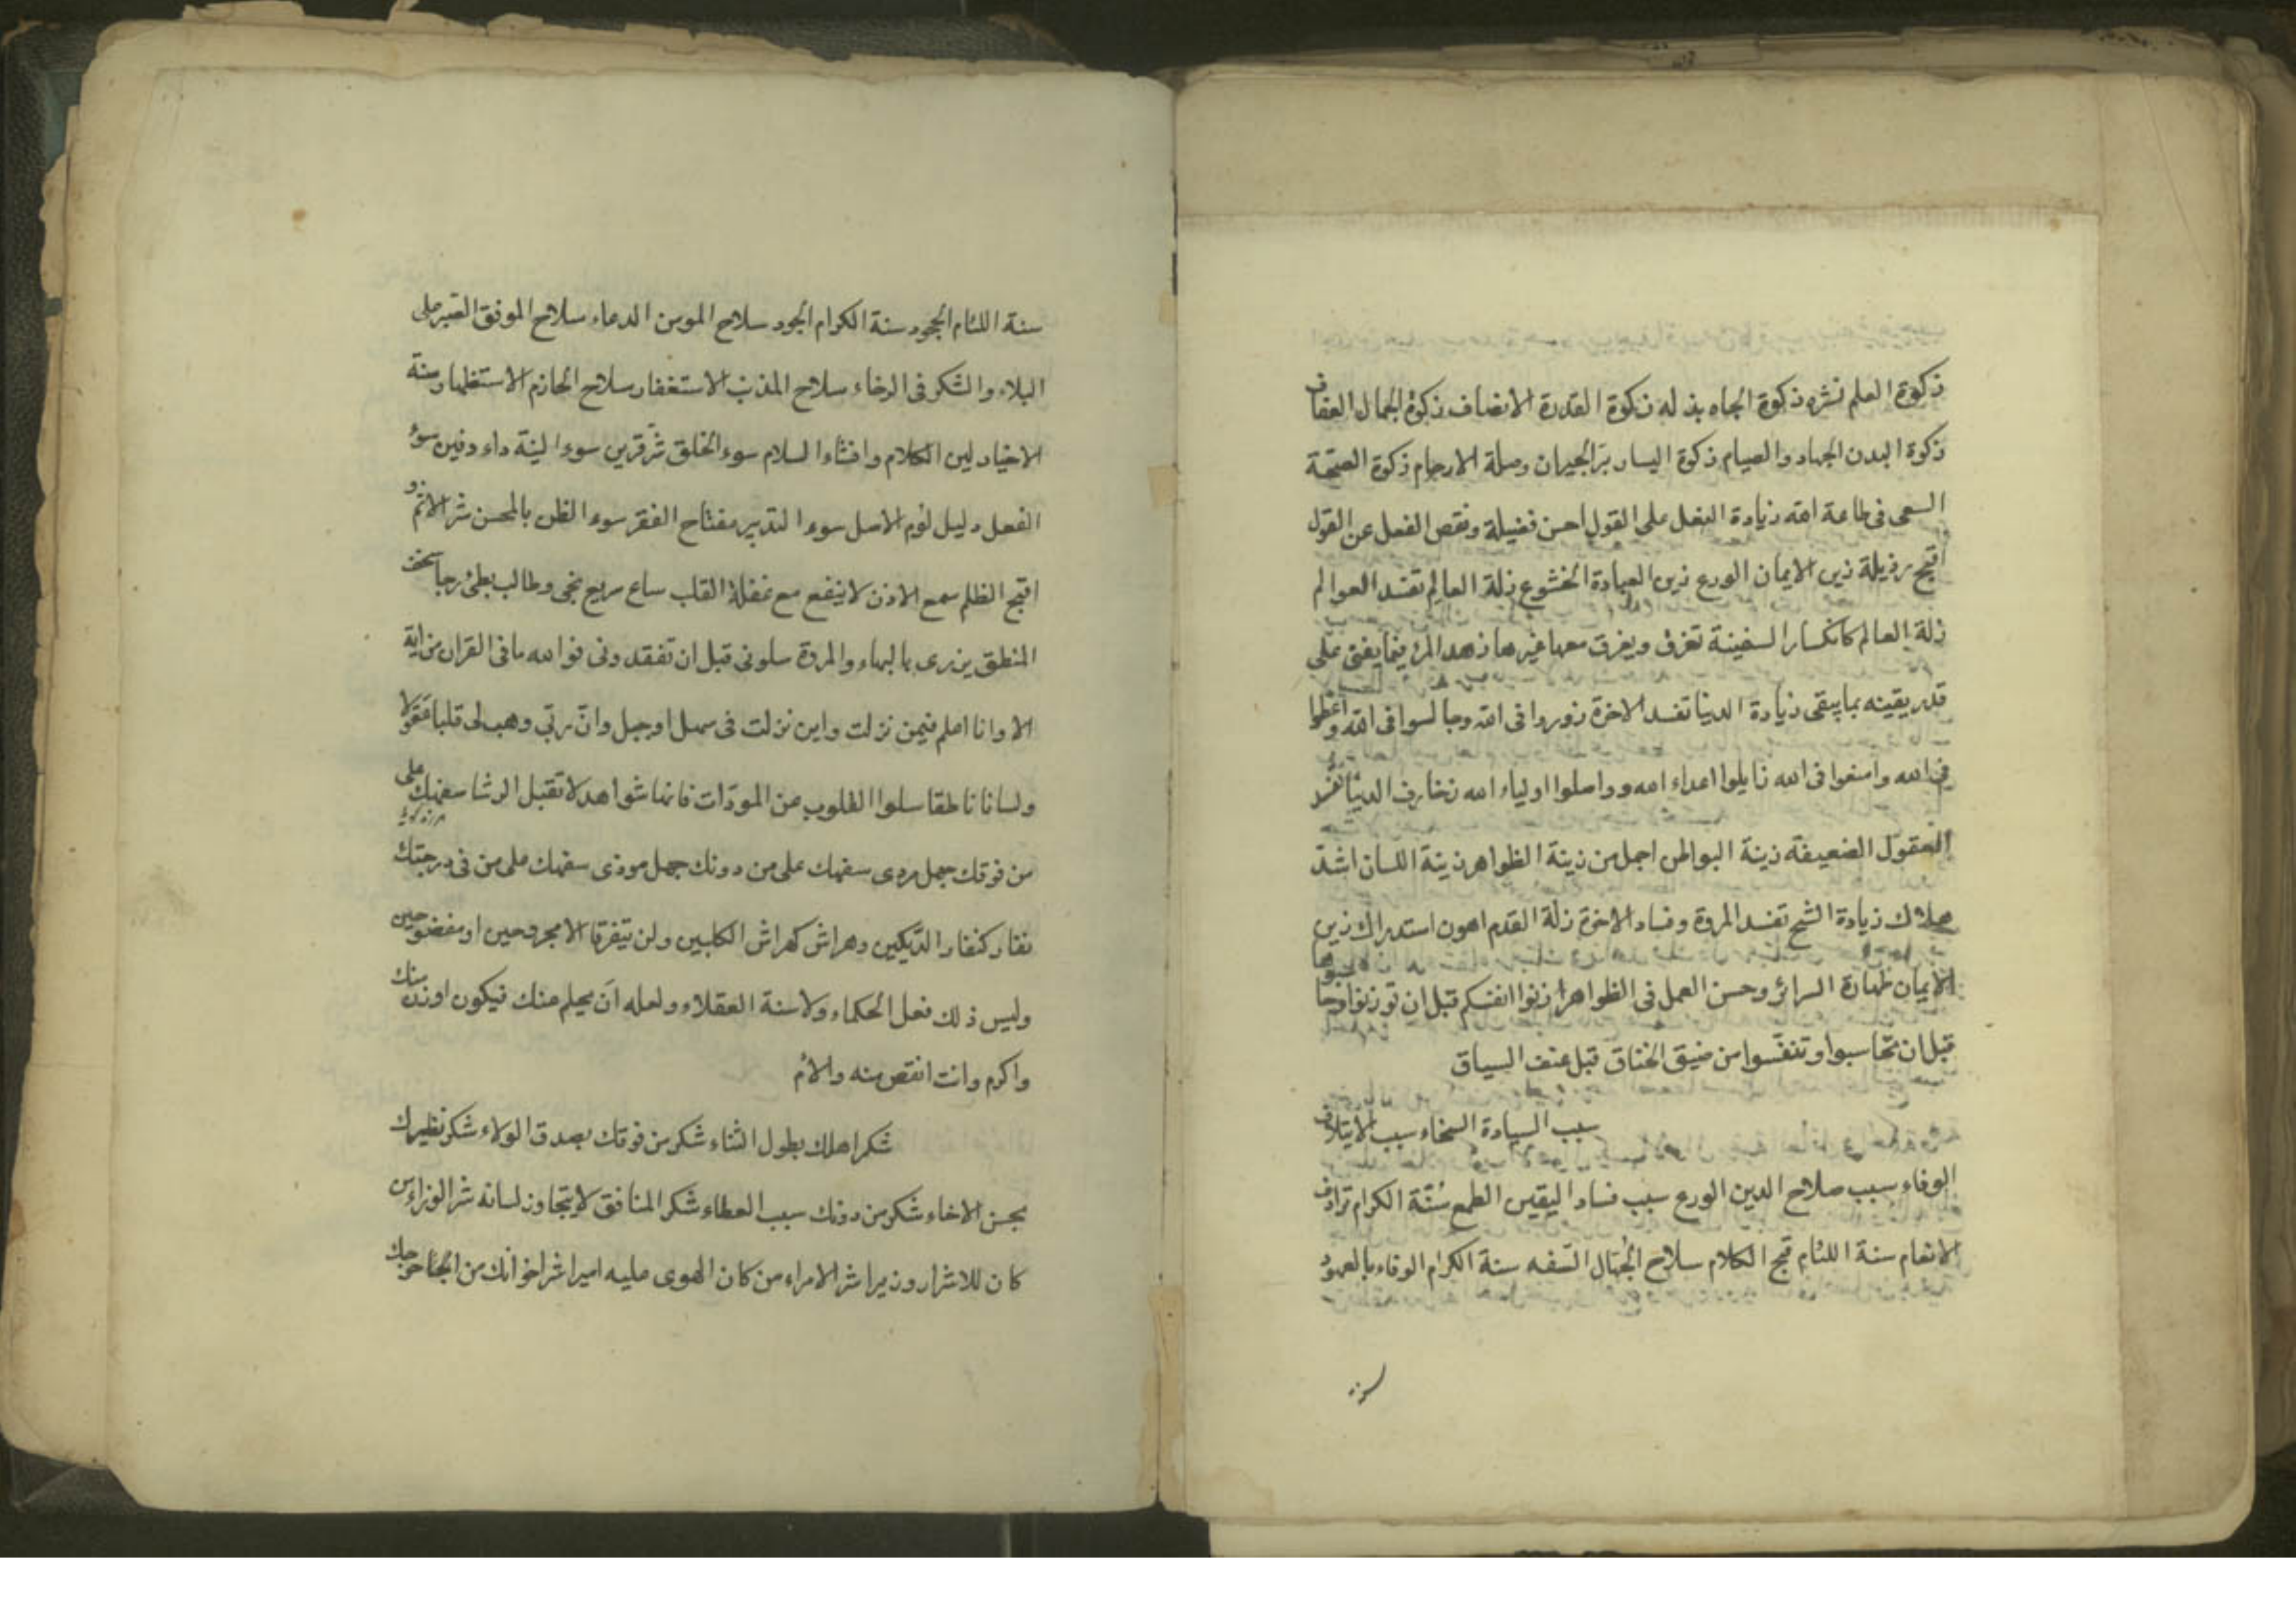 زكوة العلم نشره زكوة الجاه بذله زكوة القدرة الانصاف زكوة الجمال العفاف
زكوة البدن الجهاد والصيام زكوة اليسار برّ الجيران وصلة الارحام زكوة الصحّة
السعى فى طاعة الله زيادة الفعل على القول احسن فضيلة ونقص الفعل عن القول
اقبح رذيلة زين الايمان الورع زين العبادة الخشوع زلة العالم تفسد العوالم
زلة العالم كانكسار السفينة تغرق ويغرق معها غيرها زهد المرء فيما يفنى على
قدر يقينه بما يبقى زيادة الدنيا تفسد الاخرة زوروا فى الله وجالسوا فى الله واعطوا
فى الله وامنعوا فى الله زايلوا اعداء الله وواصلوا اولياء الله زخارف الدنيا تفسد
العقول الضعيفة زينة البواطن اجمل من زينة الظواهر زينة اللسان اشدّ
هلاك زيادة الشح تفسد المروة وفساد الاخرة زلة القدم اهون استدراك زين
الايمان طهارة السرائر وحسن العمل فى الظواهر زنوا انفسكم قبل ان توزنوا وحاسبوها
قبل ان تحاسبوا وتنفّسوا من ضيق الخناق قبل عنف السياق
سبب السيادة السخاء سبب الايتلاف
الوفاء سبب صلاح الدين الورع سبب فساد اليقين الطمع سُنّة الكرام ترادف
الانعام سنة اللئام قبح الكلام سلاح الجُهّال السّفه سنة الكرام الوفاء بالعهود
سنة
سنة اللئام الجحود سنة الكرام الجود سلاح المومن الدعاء سلاح الموفق الصبر على
البلاء والشكر فى الرخاء سلاح المذنب الاستغفار سلاح الحازم الاستظهار سنة
الاخيار لين الكلام وافشاء السلام سوء الخلق شرّ قرين سوء النية داء دفين سوء
الفعل دليل لؤم الاصل سوء التدبير مفتاح الفقر سوء الظن بالمحسن شر الاثم و
اقبح الظلم سمع الاذن لا ينفع مع غفلة القلب ساع سريع نجى وطالب بطئ رجا سخف
المنطق يزرى بالبهاء والمروة سلونى قبل ان تفقدونى فوالله ما فى القران من اية
الا وانا اعلم فيمن نزلت واين نزلت فى سهل او جبل وانّ ربّي وهب لى قلبا عقولا
ولسانا ناطقا سلوا القلوب عن المودّات فانها شواهد لا تقبل الرشا سفهك على
من فوقك جهل مردى سفهك على من دونك جهل موذى سفهك على من فى درجتك
نقار كنقار الدّيكين وهراش كهراش الكلبين ولن يتفرقا الا مجروحين او مفضوحين
وليس ذلك فعل الحكماء ولا سنة العقلاء ولعله ان يحلم عنك فيكون اوزن منك
واكرم وانت انقص منه والأم
شكر اهلك بطول الثناء شكر من فوقك بصدق الولاء شكر نظيرك
بحسن الاخاء شكر من دونك سبب العطاء شكر المنافق لا يتجاوز لسانه شر الوزراء من
كان للاشرار وزيرا شر الامراء من كان الهوى عليه اميرا شر اخوانك من احوجك